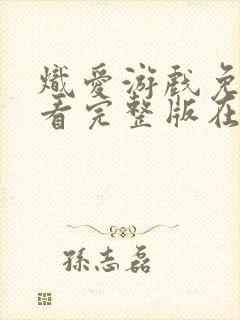 熾愛游戲免
看完整版在
孫志磊